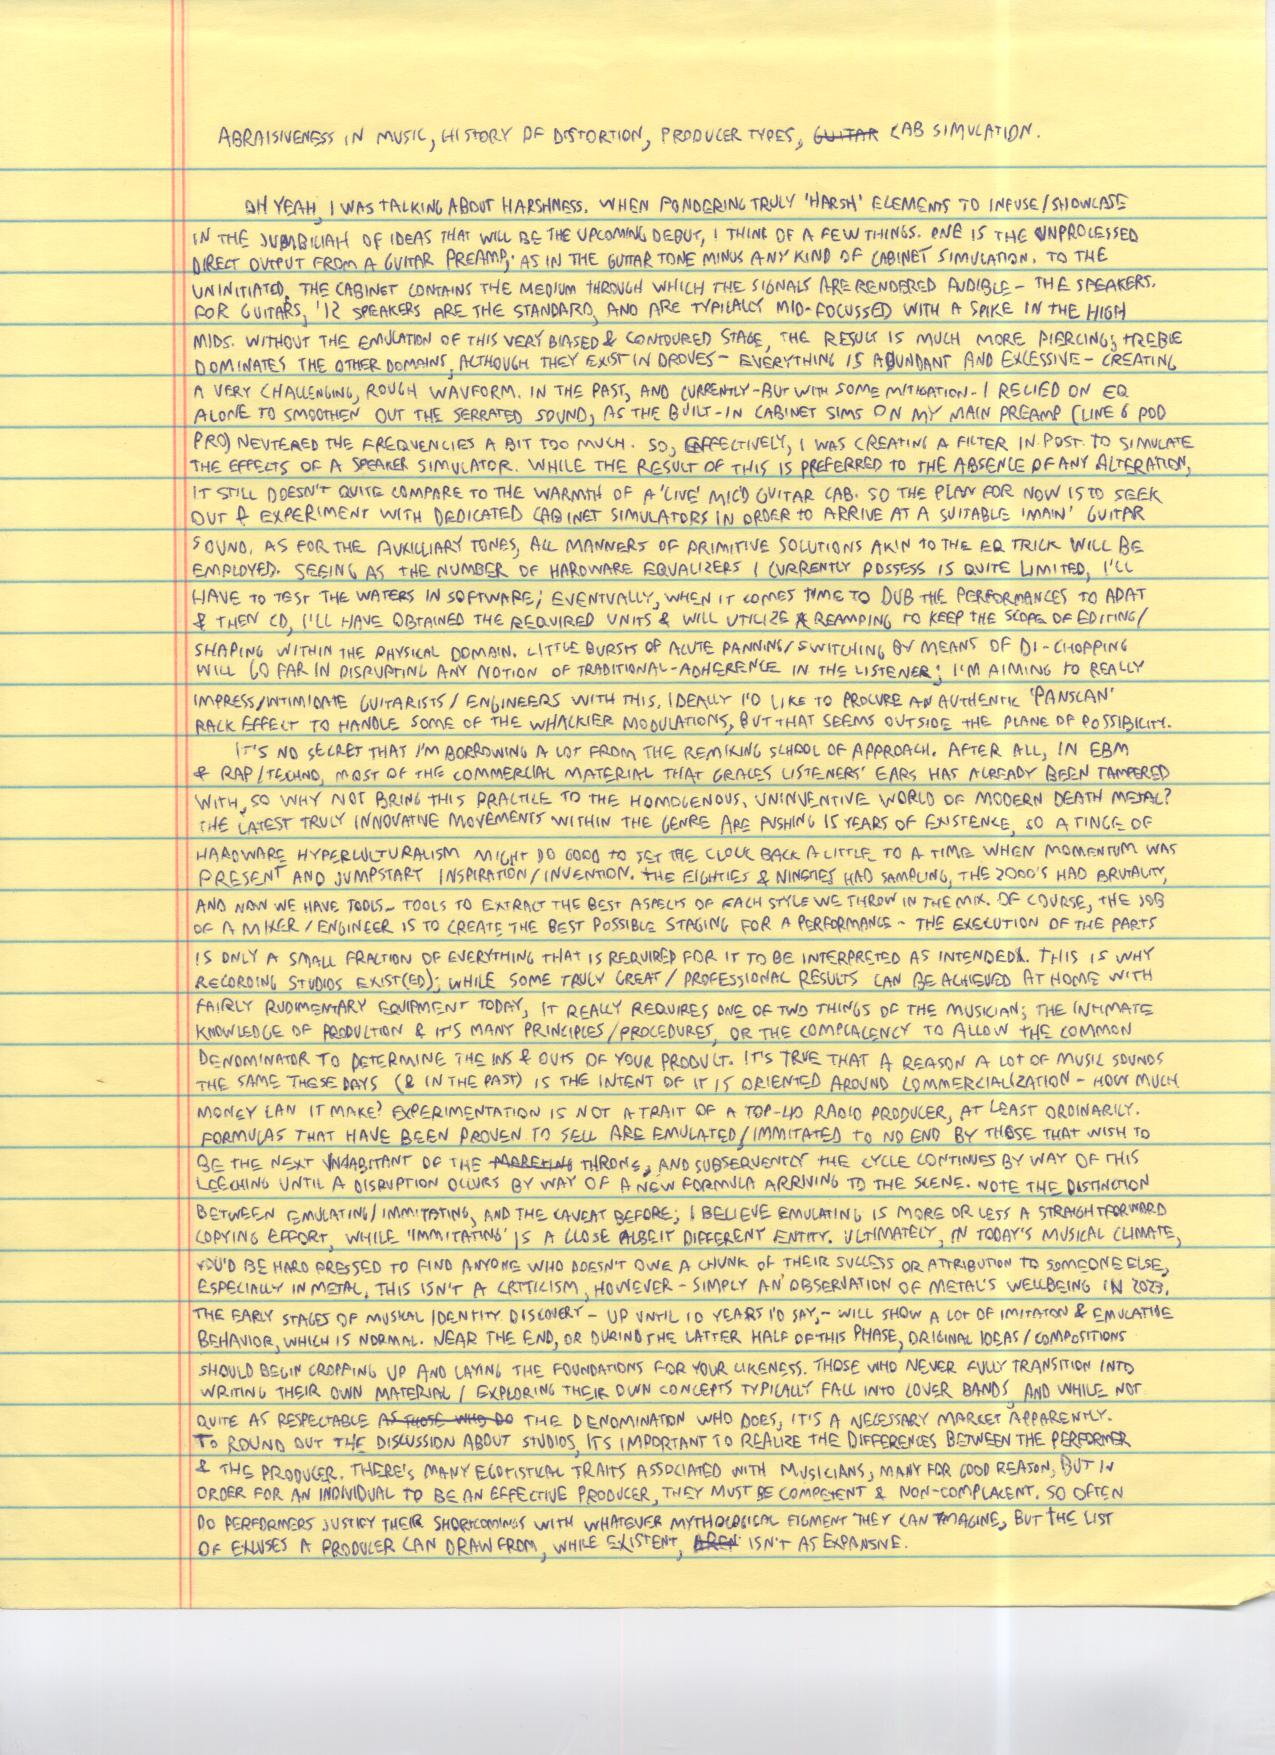 ABRAISIVENESS IN MUSIC, HISTORY OF DISTORTION, PRODUCER TYPES, GUITAR CAB SIMULATION.
OH YEAH, I WAS TALKING ABOUT HARSHNESS. WHEN PONDERING TRULY 'HARSH' ELEMENTS TO INFUSE/SHOWCASE
IN THE OF IDEAS THAT WILL BE THE UPCOMING DEBUT, I THINK OF A FEW THINGS. ONE IS THE UNPROCESSED
DIRECT OUTPUT FROM A GUITAR PREAMP; AS IN THE GUITAR TONE MINUS ANY KIND OF CABINET SIMULATION. TO THE
UNINITIATED, THE CABINET CONTAINS THE MEDIUM THROUGH WHICH THE SIGNALS ARE RENDERED AUDIBLE - THE SPEAKERS.
FOR GUITARS, '12 SPEAKERS ARE THE STANDARD, AND ARE TYPICALLY MID-FOCUSSED WITH A SPIKE IN THE HIGH
MIDS. WITHOUT THE EMULATION OF THIS VERY BIASED & CONTOURED STAGE, THE RESULT IS MUCH MORE PIERCING; TREBLE
DOMINATES THE OTHER DOMAINS, ALTHOUGH THEY EXIST IN DROVES - EVERYTHING IS ABUNDANT AND EXCESSIVE - CREATING
A VERY CHALLENGING, ROUGH WAVFORM. IN THE PAST, AND CURRENTLY - BUT WITH SOME MITIGATION - I RELIED ON EQ
ALONE TO SMOOTHEN OUT THE SERRATED SOUND, AS THE BUILT-IN CABINET SIMS ON MY MAIN PREAMP (LINE 6 POD
PRO) NEUTERED THE FREQUENCIES A BIT TOO MUCH. SO, EFFECTIVELY, I WAS CREATING A FILTER IN POST TO SIMULATE
THE EFFECTS OF A SPEAKER SIMULATOR. WHILE THE RESULT OF THIS IS PREFERRED TO THE ABSENCE OF ANY ALTERATION,
IT STILL DOESN'T QUITE COMPARE TO THE WARMTH OF A 'LIVE' MIC'D GUITAR CAB. SO THE PLAN FOR NOW IS TO SEEK
OUT & EXPERIMENT WITH DEDICATED CABINET SIMULATORS IN ORDER TO ARRIVE AT A SUITABLE 'MAIN' GUITAR
SOUND. AS FOR THE AUXILLIARY TONES, ALL MANNERS OF PRIMITIVE SOLUTIONS AKIN TO THE EQ TRICK WILL BE
EMPLOYED. SEEING AS THE NUMBER OF HARDWARE EQUALIZERS I CURRENTLY POSSESS IS QUITE LIMITED, I'LL
HAVE TO TEST THE WATERS IN SOFTWARE; EVENTUALLY, WHEN IT COMES TIME TO DUB THE PERFORMANCES TO ADAT
& THEN CD, I'LL HAVE OBTAINED THE REQUIRED UNITS & WILL UTILIZE REAMPING TO KEEP THE SCOPE OF EDITING/
SHAPING WITHIN THE PHYSICAL DOMAIN. LITTLE BURSTS OF ACUTE PANNING/SWITCHING BY MEANS OF DI-CHOPPING
WILL GO FAR IN DISRUPTING ANY NOTION OF TRADITIONAL-ADHERENCE IN THE LISTENER; I'M AIMING TO REALLY
IMPRESS/INTIMIDATE GUITARISTS/ENGINEERS WITH THIS. IDEALLY I'D LIKE TO PROCURE AN AUTHENTIC 'PANSCAN'
RACK EFFECT TO HANDLE SOME OF THE WHACKIER MODULATIONS, BUT THAT SEEMS OUTSIDE THE PLANE OF POSSIBILITY.
IT'S NO SECRET THAT I'M BORROWING A LOT FROM THE REMIXING SCHOOL OF APPROACH. AFTER ALL, IN EBM
& RAP/TECHNO, MOST OF THE COMMERCIAL MATERIAL THAT GRACES LISTENERS' EARS HAS ALREADY BEEN TAMPERED
WITH, SO WHY NOT BRING THIS PRACTICE TO THE HOMOGENOUS, UNINVENTIVE WORLD OF MODERN DEATH METAL?
THE LATEST TRULY INNOVATIVE MOVEMENTS WITHIN THE GENRE ARE PUSHING 15 YEARS OF EXISTENCE, SO A TINGE OF
HARDWARE HYPERCULTURALISM MIGHT DO GOOD TO SET THE CLOCK BACK A LITTLE TO A TIME WHEN MOMENTUM WAS
PRESENT AND JUMPSTART INSPIRATION/INVENTION. THE EIGHTIES & NINETIES HAD SAMPLING, THE 2000'S HAD BRUTALITY,
AND NOW WE HAVE TOOLS - TOOLS TO EXTRACT THE BEST ASPECTS OF EACH STYLE WE THROW IN THE MIX. OF COURSE, THE JOB
OF A MIXER/ENGINEER IS TO CREATE THE BEST POSSIBLE STAGING FOR A PERFORMANCE - THE EXECUTION OF THE PARTS
IS ONLY A SMALL FRACTION OF EVERYTHING THAT IS REQUIRED FOR IT TO BE INTERPRETED AS INTENDED. THIS IS WHY
RECORDING STUDIOS EXIST(ED); WHILE SOME TRULY GREAT/PROFESSIONAL RESULTS CAN BE ACHIEVED AT HOME WITH
FAIRLY RUDIMENTARY EQUIPMENT TODAY, IT REALLY REQUIRES ONE OF TWO THINGS OF THE MUSICIAN; THE INTIMATE
KNOWLEDGE OF PRODUCTION & IT'S MANY PRINCIPLES/PROCEDURES, OR THE COMPLACENCY TO ALLOW THE COMMON
DENOMINATOR TO DETERMINE THE INS & OUTS OF YOUR PRODUCT. IT'S TRUE THAT A REASON A LOT OF MUSIC SOUNDS
THE SAME THESE DAYS (& IN THE PAST) IS THE INTENT OF IT IS ORIENTED AROUND COMMERCIALIZATION - HOW MUCH
MONEY CAN IT MAKE? EXPERIMENTATION IS NOT A TRAIT OF A TOP-40 RADIO PRODUCER, AT LEAST ORDINARILY.
FORMULAS THAT HAVE BEEN PROVEN TO SELL ARE EMULATED/IMMITATED TO NO END BY THOSE THAT WISH TO
BE THE NEXT INHABITANT OF THE THRONE, AND SUBSEQUENTLY THE CYCLE CONTINUES BY WAY OF THIS
LEECHING UNTIL A DISRUPTION OCCURS BY WAY OF A NEW FORMULA ARRIVING TO THE SCENE. NOTE THE DISTINCTION
BETWEEN EMULATING/IMMITATING, AND THE CAVEAT BEFORE; I BELIEVE EMULATING IS MORE OR LESS A STRAIGHTFORWARD
COPYING EFFORT, WHILE 'IMMITATING' IS A CLOSE ALBEIT DIFFERENT ENTITY. ULTIMATELY, IN TODAY'S MUSICAL CLIMATE,
YOU'D BE HARD PRESSED TO FIND ANYONE WHO DOESN'T OWE A CHUNK OF THEIR SUCCESS OR ATTRIBUTION TO SOMEONE ELSE,
ESPECIALLY IN METAL. THIS ISN'T A CRITICISM, HOWEVER - SIMPLY AN OBSERVATION OF METAL'S WELLBEING IN 2023.
THE EARLY STAGES OF MUSICAL IDENTITY DISCOVERY - UP UNTIL 10 YEARS I'D SAY, - WILL SHOW A LOT OF IMITATON & EMULATIVE
BEHAVIOR, WHICH IS NORMAL. NEAR THE END, OR DURING THE LATTER HALF OF THIS PHASE, ORIGINAL IDEAS/COMPOSITIONS
SHOULD BEGIN CROPPING UP AND LAYING THE FOUNDATIONS FOR YOUR LIKENESS. THOSE WHO NEVER FULLY TRANSITION INTO
WRITING THEIR OWN MATERIAL/EXPLORING THEIR OWN CONCEPTS TYPICALLY FALL INTO COVER BANDS, AND WHILE NOT
QUITE AS RESPECTABLE AS THOSE WHO DO THE DENOMINATION WHO DOES, IT'S A NECESSARY MARKET APPARENTLY.
TO ROUND OUT THE DISCUSSION ABOUT STUDIOS, IT'S IMPORTANT TO REALIZE THE DIFFERENCES BETWEEN THE PERFORMER
& THE PRODUCER. THERE'S MANY EGOTISTICAL TRAITS ASSOCIATED WITH MUSICIANS, MANY FOR GOOD REASON, BUT IN
ORDER FOR AN INDIVIDUAL TO BE AN EFFECTIVE PRODUCER, THEY MUST BE COMPETENT & NON-COMPLACENT. SO OFTEN
DO PERFORMERS JUSTIFY THEIR SHORTCOMINGS WITH WHATEVER MYTHOLOGICAL FIGMENT THEY CAN IMAGINE, BUT THE LIST
OF EXCUSES A PRODUCER CAN DRAW FROM, WHILE EXISTENT, AREN' ISN'T AS EXPANSIVE.